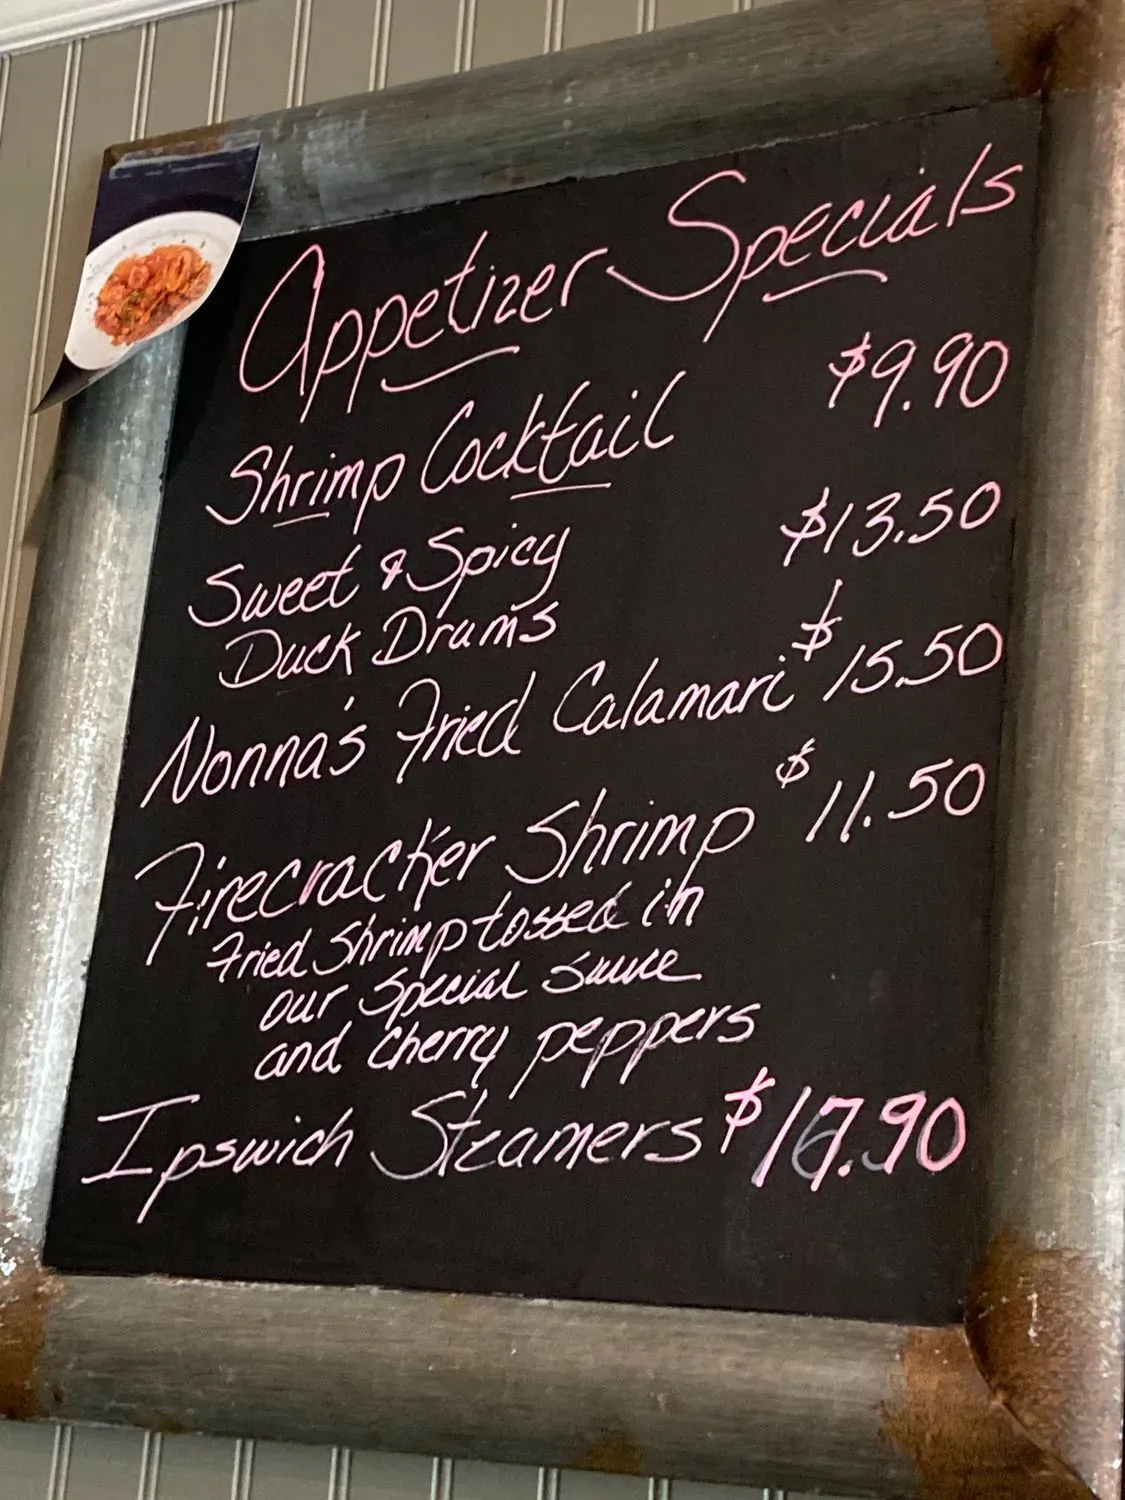 Appetizer Specials
Shrimp Cocktail $9.90
Sweet & Spicy $13.50
Duck Drums
Nonna's Fried Calamari $15.50
Firecracker Shrimp $11.50
Fried Shrimp tossed in
our special sauce
and cherry peppers
Ipswich Steamers $17.90